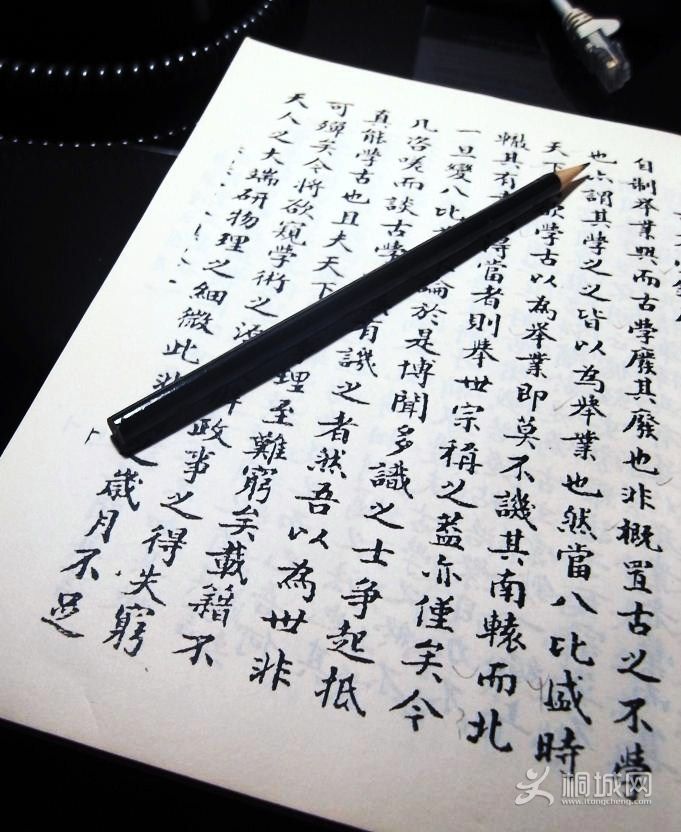 自制舉業興而古學廢其廢也非概置古之不學
也亦謂其學之之皆以為舉業也然當八比盛時
天下欲學古以為舉業即莫不譏其南轅而北
轍其有得當者則舉世宗稱之蓋亦僅矣今
一旦變八比論於是博聞多識之士爭起抵
几咨嗟而談古學有譏之者然吾以為世非
真能學古也且夫天下理至難窮矣載籍不
可殫矣今將欲窺學術之政事之得失窮
天人之大端研物理之細微此非歲月不足
桐城网
www.itongcheng.com